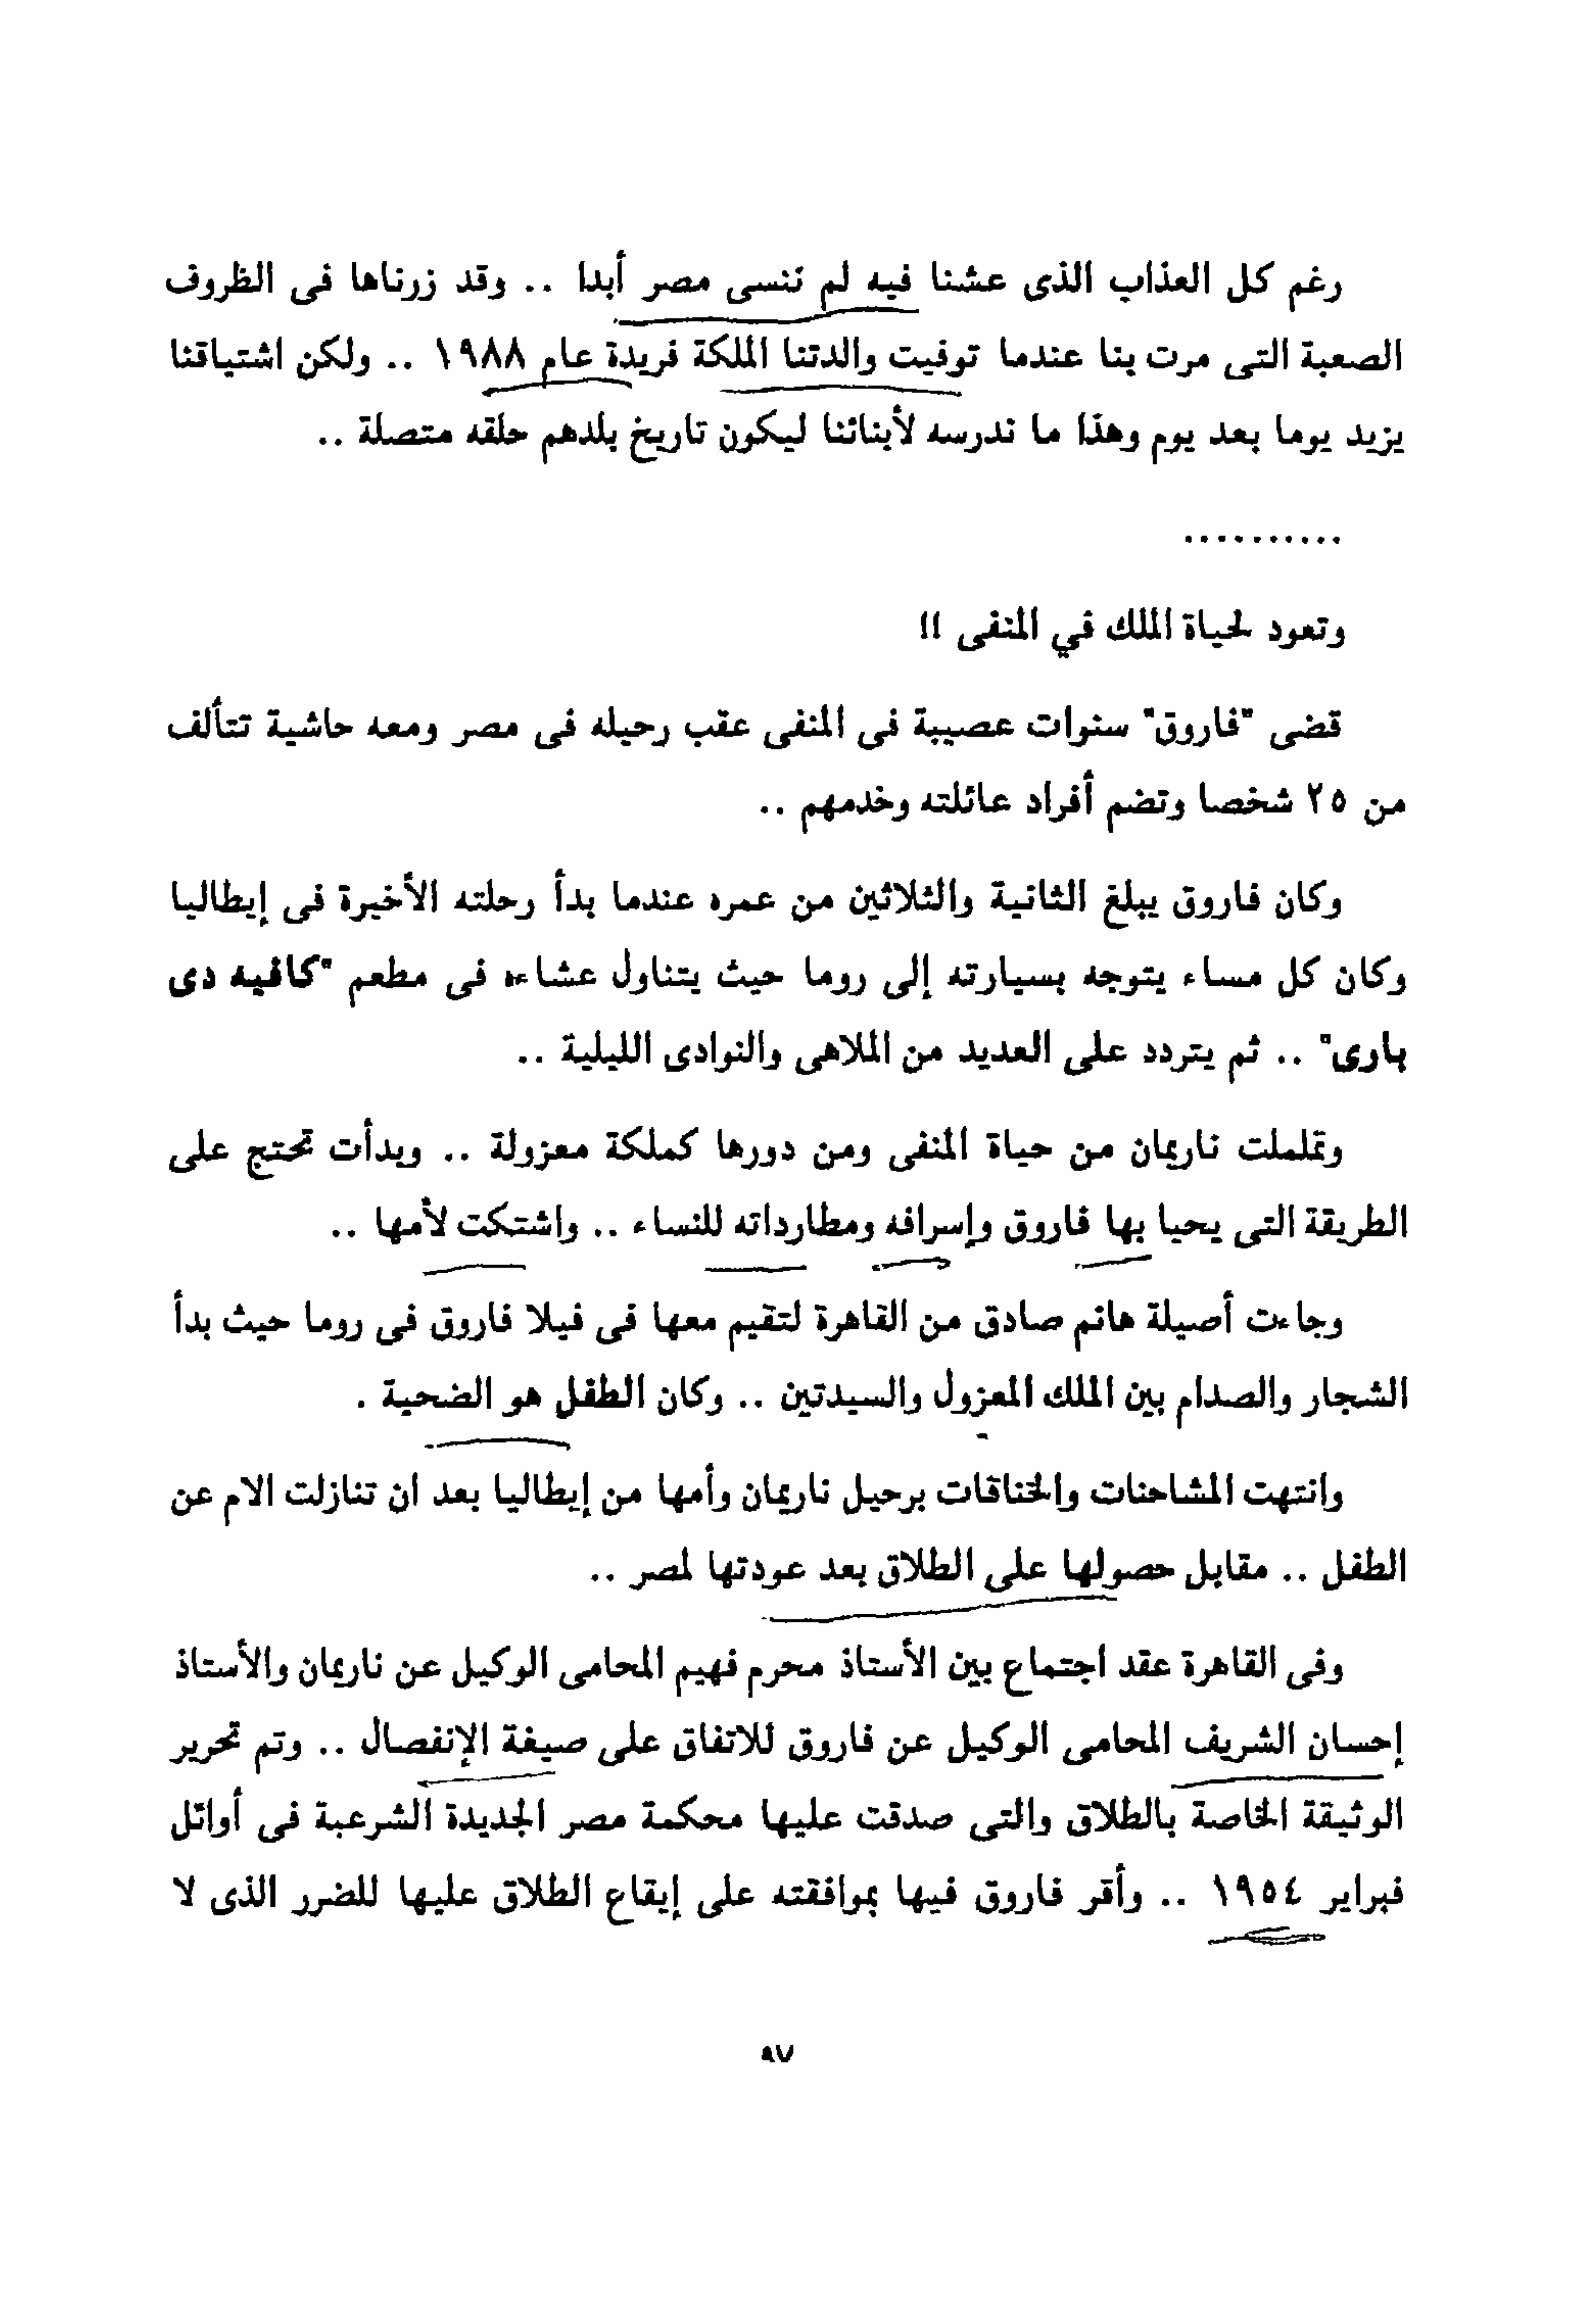 رغم كل العذاب الذى عشنا فيه لم ننسى مصر أبدا .. وقد زرناها فى الظروف
الصعبة التى مرت بنا عندما توفيت والدتنا الملكة فريدة عام ١٩٨٨ .. ولكن اشتياقنا
يزيد يوما بعد يوم وهذا ما ندرسه لأبنائنا ليكون تاريخ بلدهم حلقه متصلة ..
..........
وتعود لحياة الملك في المنفى !!
قضى "فاروق" سنوات عصيبة فى المنفى عقب رحيله فى مصر ومعه حاشية تتألف
من ٢٥ شخصا وتضم أفراد عائلته وخدمهم ..
وكان فاروق يبلغ الثانية والثلاثين من عمره عندما بدأ رحلته الأخيرة فى إيطاليا
وكان كل مساء يتوجه بسيارته إلى روما حيث يتناول عشاءه فى مطعم "كافيه دى
بارى" .. ثم يتردد على العديد من الملاهى والنوادى الليلية ..
وتململت ناريمان من حياة المنفى ومن دورها كملكة معزولة .. وبدأت تحتج على
الطريقة التى يحيا بها فاروق وإسرافه ومطارداته للنساء .. واشتكت لأمها ..
وجاءت أصيلة هانم صادق من القاهرة لتقيم معها فى فيلا فاروق فى روما حيث بدأ
الشجار والصدام بين الملك المعزول والسيدتين .. وكان الطفل هو الضحية .
وانتهت المشاحنات والخناقات برحيل ناريمان وأمها من إيطاليا بعد ان تنازلت الام عن
الطفل .. مقابل حصولها على الطلاق بعد عودتها لمصر ..
وفى القاهرة عقد اجتماع بين الأستاذ محرم فهيم المحامى الوكيل عن ناريمان والأستاذ
إحسان الشريف المحامى الوكيل عن فاروق للاتفاق على صيغة الإنفصال .. وتم تحرير
الوثيقة الخاصة بالطلاق والتى صدقت عليها محكمة مصر الجديدة الشرعبة فى أوائل
فبراير ١٩٥٤ .. وأقر فاروق فيها بموافقته على إيقاع الطلاق عليها للضرر الذى لا
٩٧